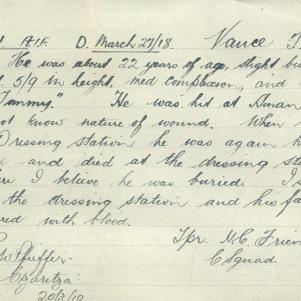 A.I.F. D. March 27/18. Vance T
He was about 22 years of age, slight bu
5/9 in height, med complexion, and
"Jimmy." He was hit at Aman
not know nature of wound. When
Dressing station he was again h
and died at the dressing sta
I believe he was buried. I s
the dressing station and his fa
red with blood.
Tpr. N.C. Frien
C Squad.
20/3/19